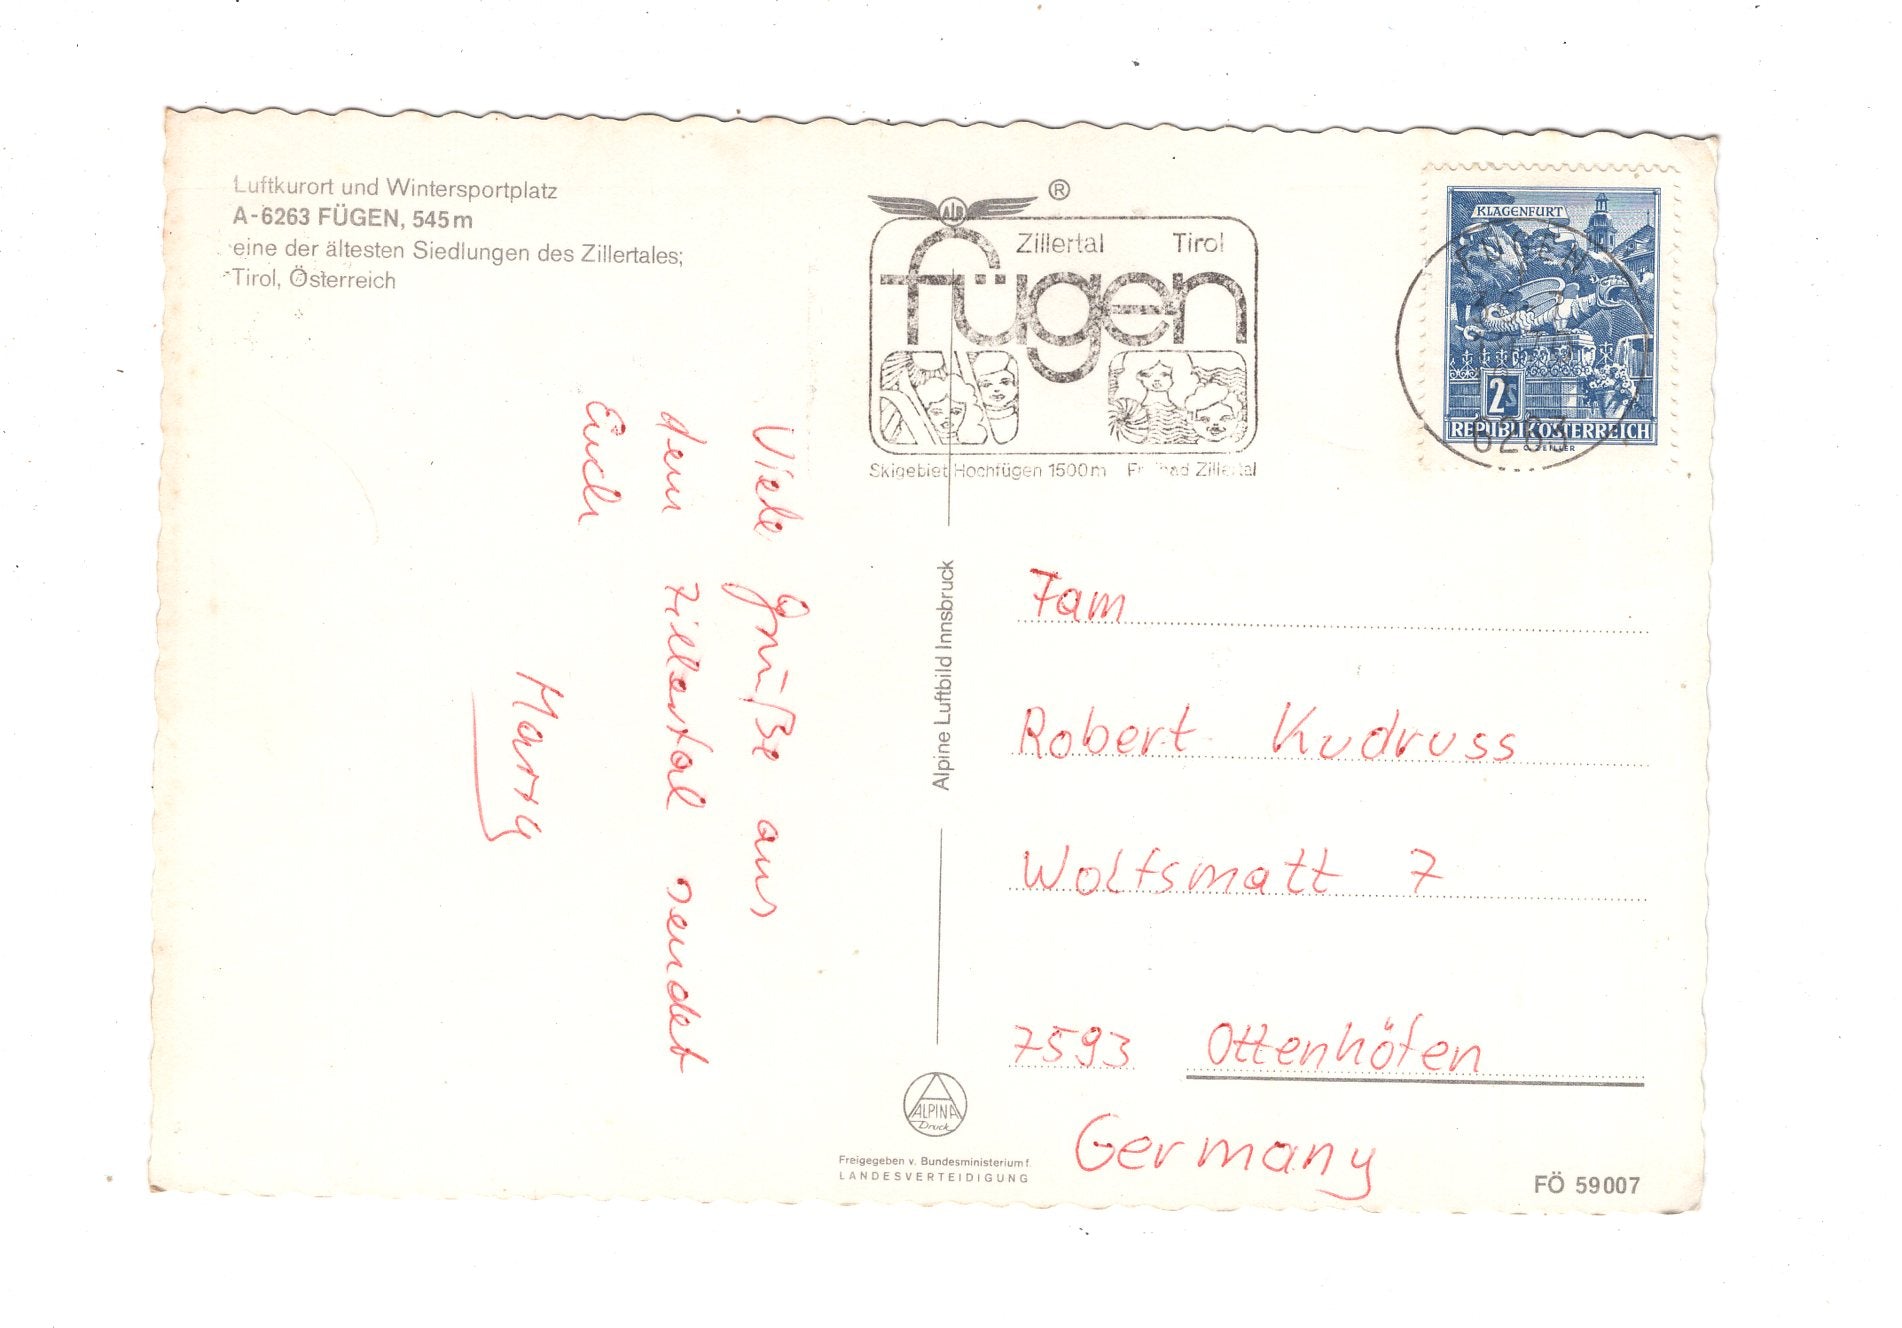 Luftkurort und Wintersportplatz
A-6263 FÜGEN, 545 m
eine der ältesten Siedlungen des Zillertales;
Tirol, Österreich
Viele Grüße aus
dem Zillertal sendet
Euch
Harry
®
Zillertal Tirol
fügen
Skigebiet Hochfügen 1500m Freibad Zillertal
KLAGENFURT
2S
REPUBLIK ÖSTERREICH
FÜGEN
6263
Alpine Luftbild Innsbruck
Fam
Robert Kudruss
Wolfsmatt 7
7593 Ottenhöfen
Germany
ALPINA
Druck
Freigegeben v. Bundesministerium f.
LANDESVERTEIDIGUNG
FÖ 59007